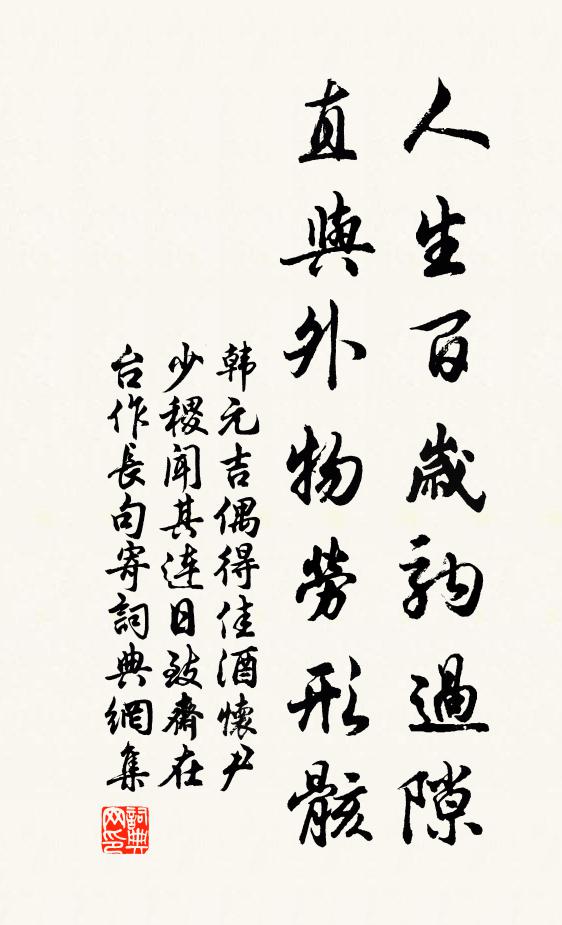 人生百歲駒過隙
直與外物勞形骸
韩元吉偶得佳酒懷尹
少稷闻其连日致齋在
台作長句寄詞典網集
詞典
网印